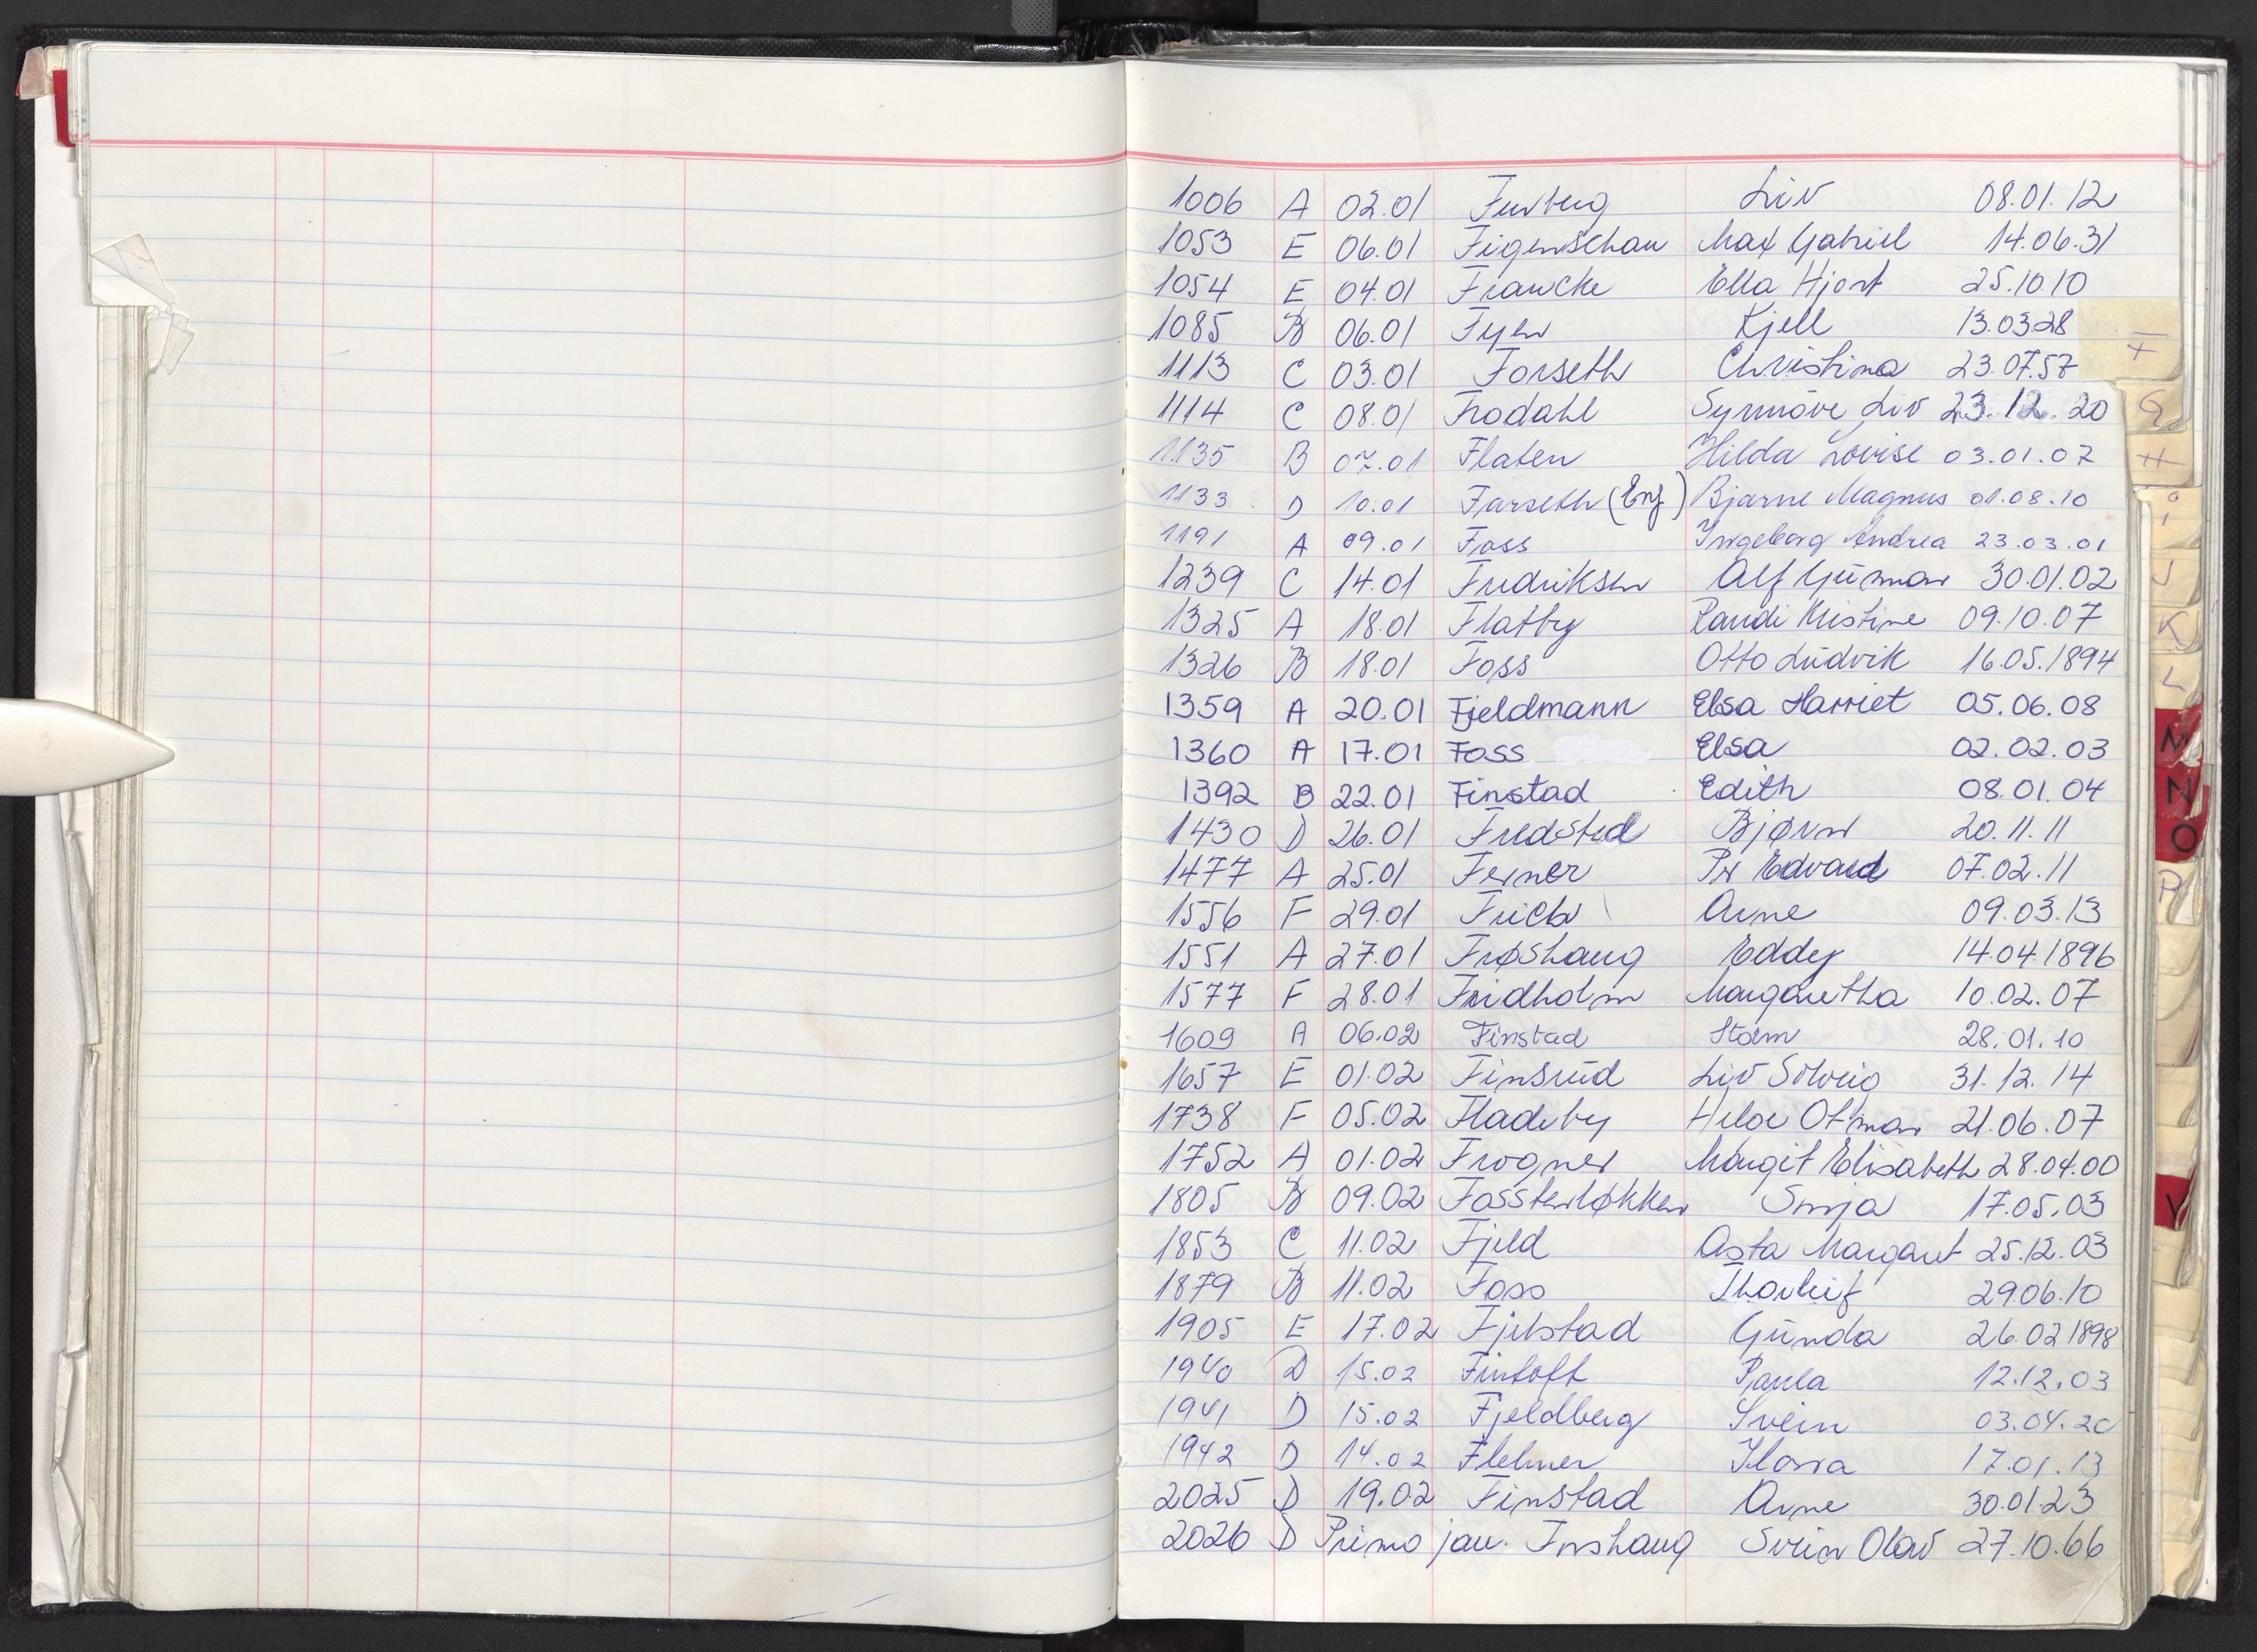 1006 A 02.01 Furberg Liv 08.01.12
1053 E 06.01 Figenschau Max Gabriel 14.06.31
1054 E 04.01 Francke Ella Hjort 25.10.10
1085 B 06.01 Fyen Kjell 13.03.28
1113 C 03.01 Forseth Christina 23.07.57
1114 C 08.01 Frodahl Synnöve Liv 23.12.20
1135 B 07.01 Flaten Hilda Lovise 03.01.07
1133 D 10.01 Farseth (Eng) Bjarne Magnus 01.08.10
1191 A 09.01 Foss Ingeborg Andrea 23.03.01
1239 C 14.01 Fredriksen Alf Gunnar 30.01.02
1325 A 18.01 Flatby Randi Kristine 09.10.07
1326 B 18.01 Foss Otto Ludvik 16.05.1894
1359 A 20.01 Fjeldmann Elsa Harriet 05.06.08
1360 A 17.01 Foss Elsa 02.02.03
1392 B 22.01 Finstad Edith 08.01.04
1430 D 26.01 Fredsted Bjørn 20.11.11
1477 A 25.01 Ferner Pr Edvard 07.02.11
1556 F 29.01 Frich Arne 09.03.13
1551 A 27.01 Frøshaug Eddey 14.04.1896
1577 F 28.01 Fridholm Margaretha 10.02.07
1609 A 06.02 Finstad Storm 28.01.10
1657 E 01.02 Finsrud Liv Solveig 31.12.14
1738 F 05.02 Fladeby Helge Otmar 21.06.07
1752 A 01.02 Frogner Margit Elisabeth 28.04.00
1805 B 09.02 Fossterløkken Sonja 17.05.03
1853 C 11.02 Fjeld Asta Margaret 25.12.03
1879 B 11.02 Foss Thorleif 29.06.10
1905 E 17.02 Fjelstad Gunda 26.02.1898
1940 D 15.02 Fintoft Paula 12.12.03
1941 D 15.02 Fjeldberg Svein 03.04.20
1942 D 14.02 17.01.13
2025 D 19.02 Finstad Arne 30.01.23
2026 D Primo jan. Froshaug Svein Olav 27.10.66
F
G
H
I
J
K
L
M
N
O
P
V